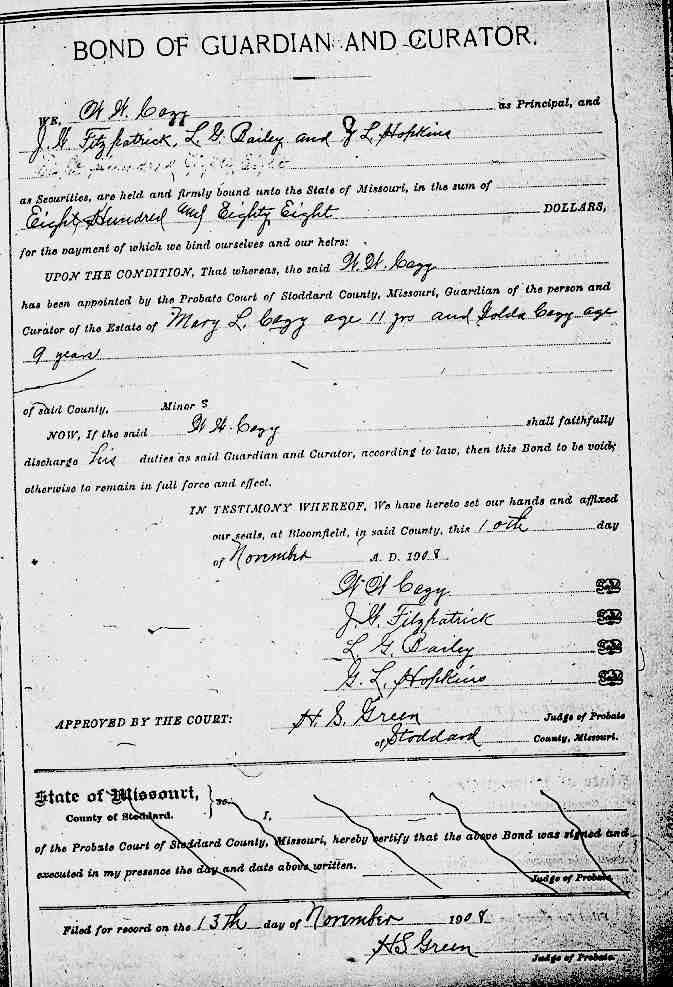 BOND OF GUARDIAN AND CURATOR.
WE, W. W. Cagy as Principal, and
J. G. Fitzpatrick, L. G. Bailey and G L Hopkins
Eight Hundred Eighty Eight
as Securities, are held and firmly bound unto the State of Missouri, in the sum of
Eight Hundred and Eighty Eight DOLLARS,
for the payment of which we bind ourselves and our heirs:
UPON THE CONDITION, That whereas, the said W. W. Cagy
has been appointed by the Probate Court of Stoddard County, Missouri, Guardian of the person and
Curator of the Estate of Mary L. Cagy age 11 yrs and Cagy age
9 years
of said County, Minors
NOW, If the said W. W. Cagy shall faithfully
discharge his duties as said Guardian and Curator, according to law, then this Bond to be void;
otherwise to remain in full force and effect.
IN TESTIMONY WHEREOF, We have hereto set our hands and affixed
our seals, at Bloomfield, in said County, this 10th day
of November A. D. 1908
W W Cagy
J. G. Fitzpatrick
L. G. Bailey
G. L. Hopkins
APPROVED BY THE COURT: H. S. Green Judge of Probate
of Stoddard County, Missouri.
State of Missouri,
County of Stoddard. } ss. I,
of the Probate Court of Stoddard County, Missouri, hereby certify that the above Bond was signed and
executed in my presence the day and date above written.
Judge of Probate.
Filed for record on the 13th day of November 1908
H S Green
Judge of Probate.